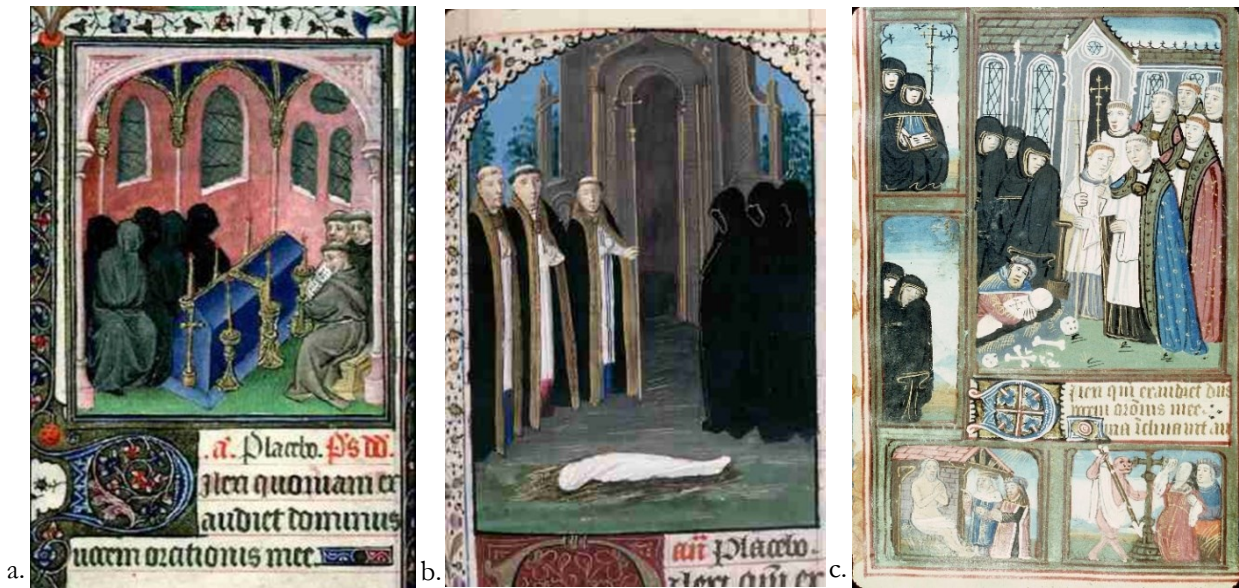 .a. Placebo. Ps dd.
Dilexi quoniam ex
audiet dominus
Vocem orationis mee.
a.
añ Placebo.
b.
Dilexi qm exaudiet dns
vocem orõnis mee
c.